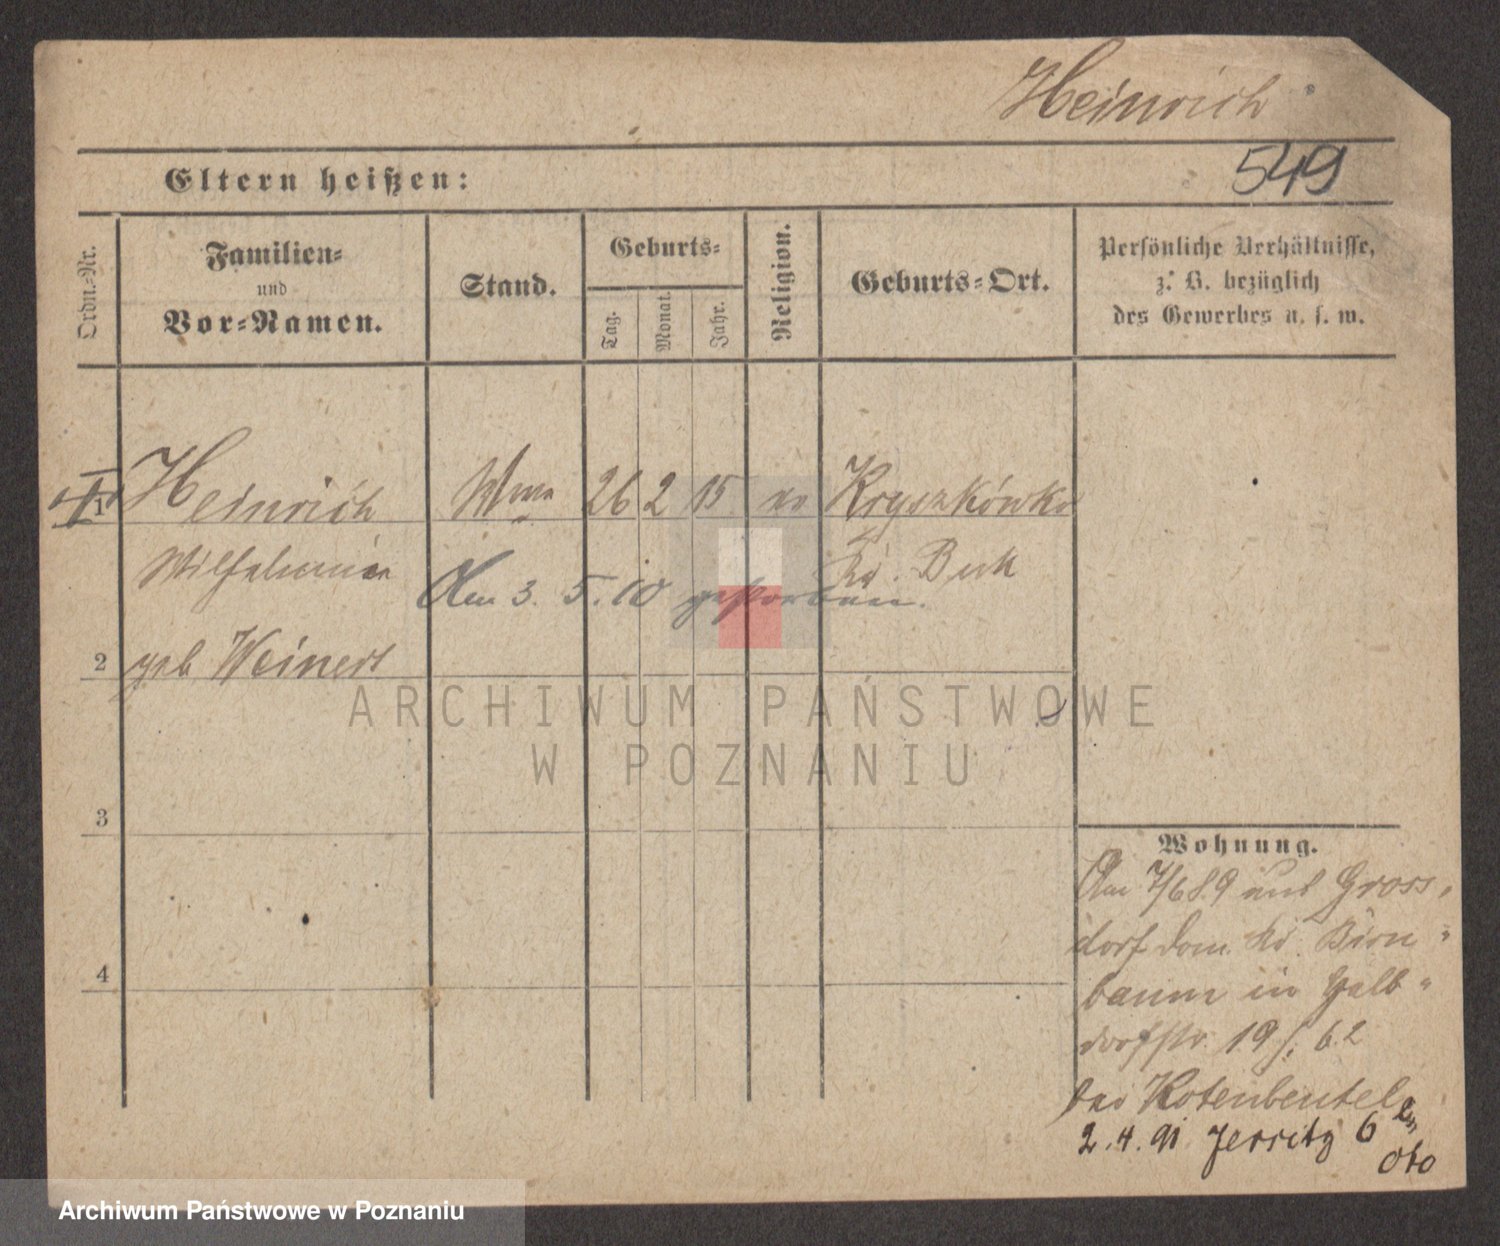 Heinrich
549
Eltern heißen:
Ordn.-Nr.
Familien-
und
Vor-Namen.
Stand.
Geburts-
Tag.
Monat.
Jahr.
Religion.
Geburts-Ort.
Persönliche Verhältnisse,
z. B. bezüglich
des Gewerbes u. s. w.
Heinrich Wwe 26 2 15 ev Kryszkówko
Wilhelmine Kr. Buk
Am 3. 5. 10 gestorben.
2 geb Weinert
3
4
Wohnung.
Am 7/6 89 aus Gross-
dorf Dom. Kr. Birn-
baum in Halb-
dorfstr. 19 I. b. 2
bei Rotenbeutel
2. 4. 91 Jersitz 6
Oto
ARCHIWUM PAŃSTWOWE
W POZNANIU
Archiwum Państwowe w Poznaniu